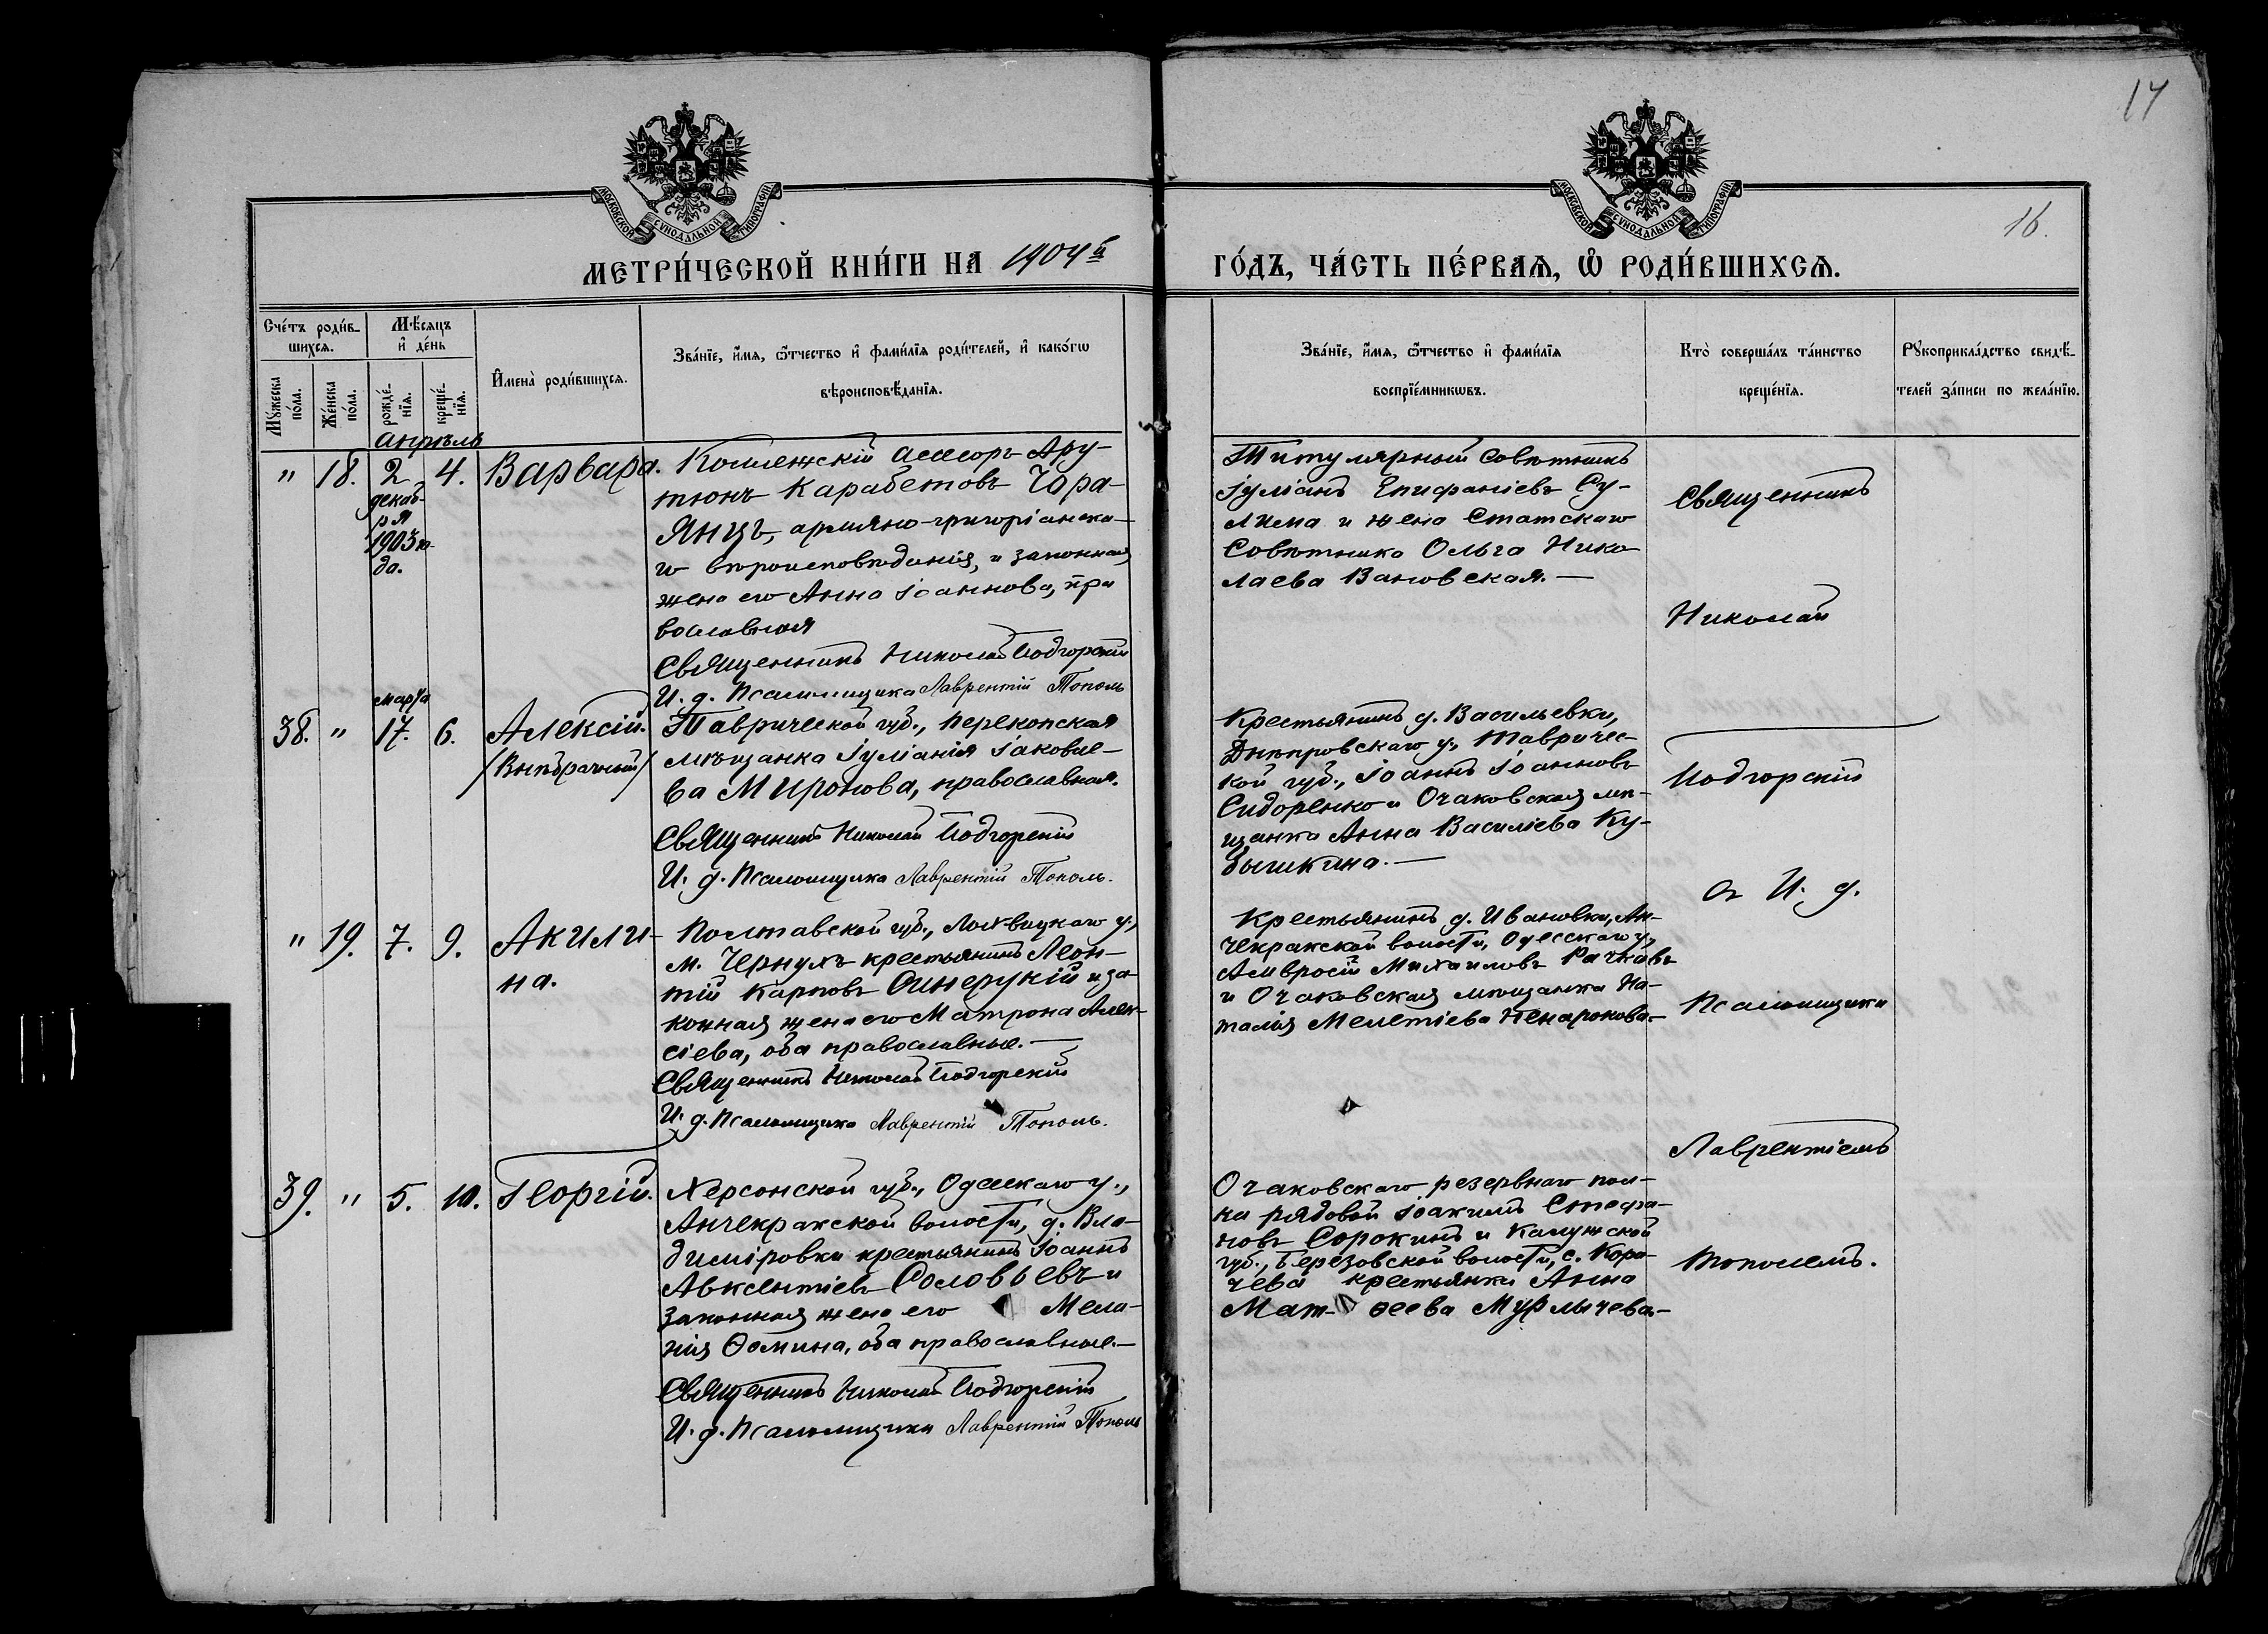 17
16.
МОСКОВСКОЙ СУНОДАЛЬНОЙ ТИПОГРАФІИ
МОСКОВСКОЙ СУНОДАЛЬНОЙ ТИПОГРАФІИ
МЕТРИ́ЧЕСКОЙ КНИ́ГИ НА 1904й
ГО́ДЪ, ЧА́СТЬ ПЕ́РВАѦ, Ѡ҆ РОДИ́ВШИХСѦ.
Сче́тъ роди́в-
шихсѧ.
Мꙋ́жеска
по́ла.
Же́нска
по́ла.
Мѣ́сѧцъ
и҆ де́нь
рожде́-
нїѧ.
креще́-
нїѧ.
И҆мена̀ роди́вшихсѧ.
Зва́нїе, и҆́мѧ, ѻ҆́тчество и҆ фами́лїѧ роди́телей, и҆ како́гѡ
вѣроисповѣ́данїѧ.
Зва́нїе, и҆́мѧ, ѻ҆́тчество и҆ фами́лїѧ
воспрїе́мникѡвъ.
Кто̀ соверша́лъ та́инство
креще́нїѧ.
Рꙋкоприкла́дство свидѣ́-
телей за́писи по жела́нїю.
апрѣль
" 18. 2 4. Варвара.
декаб-
ря
1903 го-
да.
Коллежскій ассесоръ Ару-
тюнъ Карабетовъ Чора-
янцъ, армяно-григоріанска-
го вѣроисповѣданія, и законная
жена его Анна Іоаннова, пра
вославная
Священникъ Николай Подгорскій
И. д. Псаломщика Лаврентій Тополь
Титулярный Совѣтникъ
Іуліанъ Епифаніевъ Су-
лима и жена Статскаго
Совѣтника Ольга Нико-
лаева Вановская.—
Священникъ
Николай
марта
38. " 17. 6. Алексій.
/Внѣбрачный/
Таврической губ., Перекопская
мѣщанка Іуліанія Іаковле-
ва Миронова, православная.
Священникъ Николай Подгорскій
И. д. Псаломщика Лаврентій Тополь.
Крестьянинъ д. Васильевки,
Днѣпровскаго у., Тавричес-
кой губ., Іоаннъ Іоанновъ
Сидоренко и Очаковская мѣ-
щанка Анна Василіева Ку-
бышкина.—
Подгорскій
съ И. д.
" 19. 7. 9. Акили-
на.
Полтавской губ., Лохвицкаго у.,
м. Чернухъ крестьянинъ Леон-
тій Карповъ Синеруцкій и за-
конная жена его Матрона Алек-
сіева, оба православные.—
Священникъ Николай Подгорскій
И. д. Псаломщика Лаврентій Тополь.
Крестьянинъ д. Ивановки, Ан-
чекракской волости, Одесскаго у.,
Амвросій Михаиловъ Рачковъ
и Очаковская мѣщанка На-
талія Мелетіева Ненарокова.—
Псаломщика
Лаврентіемъ
39. " 5. 10. Георгій.
Херсонской губ., Одесскаго у.,
Анчекракской волости, д. Вла-
диміровки крестьянинъ Іоаннъ
Авксентіевъ Соловьевъ и
законная жена его Мела-
нія Ѳомина, оба православные.—
Священникъ Николай Подгорскій
И. д. Псаломщика Лаврентій Тополь
Очаковскаго резервнаго пол-
ка рядовой Іоакимъ Стефа-
новъ Сорокинъ и Калужской
губ., Березовской волости, с. Кора-
чева крестьянка Анна
Мат- ѳеева Мурлычева.—
Тополемъ.